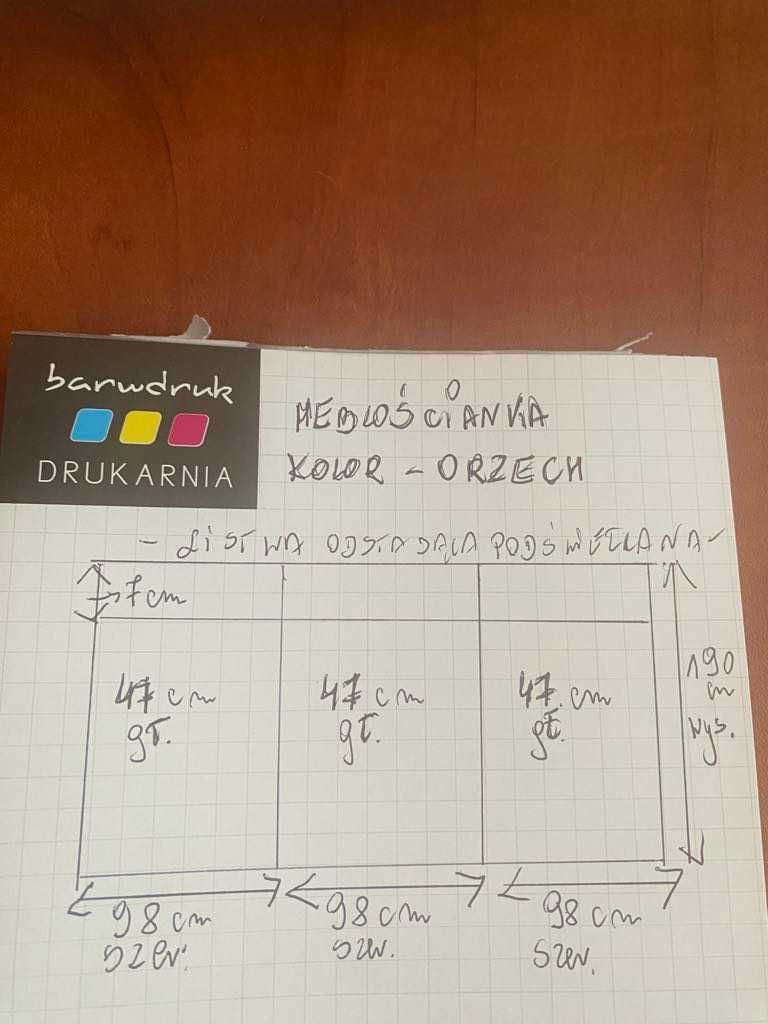 barwdruk
DRUKARNIA
MEBLOŚCIANKA
KOLOR - ORZECH
- LISTWA ODSTAJĄCA PODŚWIETLANA -
7 cm
47 cm
gł.
47 cm
gł.
47 cm
gł.
190
cm
wys.
98 cm
szer.
98 cm
szer.
98 cm
szer.